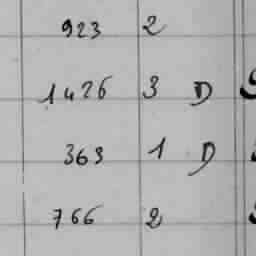 923 2
1426 3 D
363 1 D
766 2